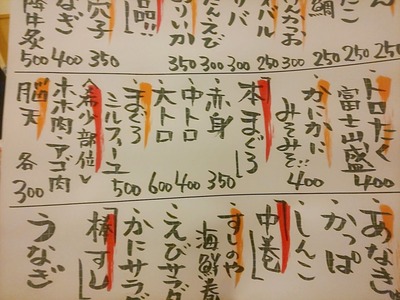 たこ
鯛
250
250
250
300
300
300
350
穴子
350
うなぎ
400
500
トロたく
400
富士山盛
かにかに
みそみそ!!
400
本まぐろ
赤身
350
中トロ
400
大トロ
600
まぐろ
ミルフィーユ
500
希少部位
ホホ肉 アゴ肉
脳天 各
300
あなき
かっぱ
しんこ
中巻
すしのや
海鮮巻
えびサラダ
かにサラダ
棒すし
うなぎ